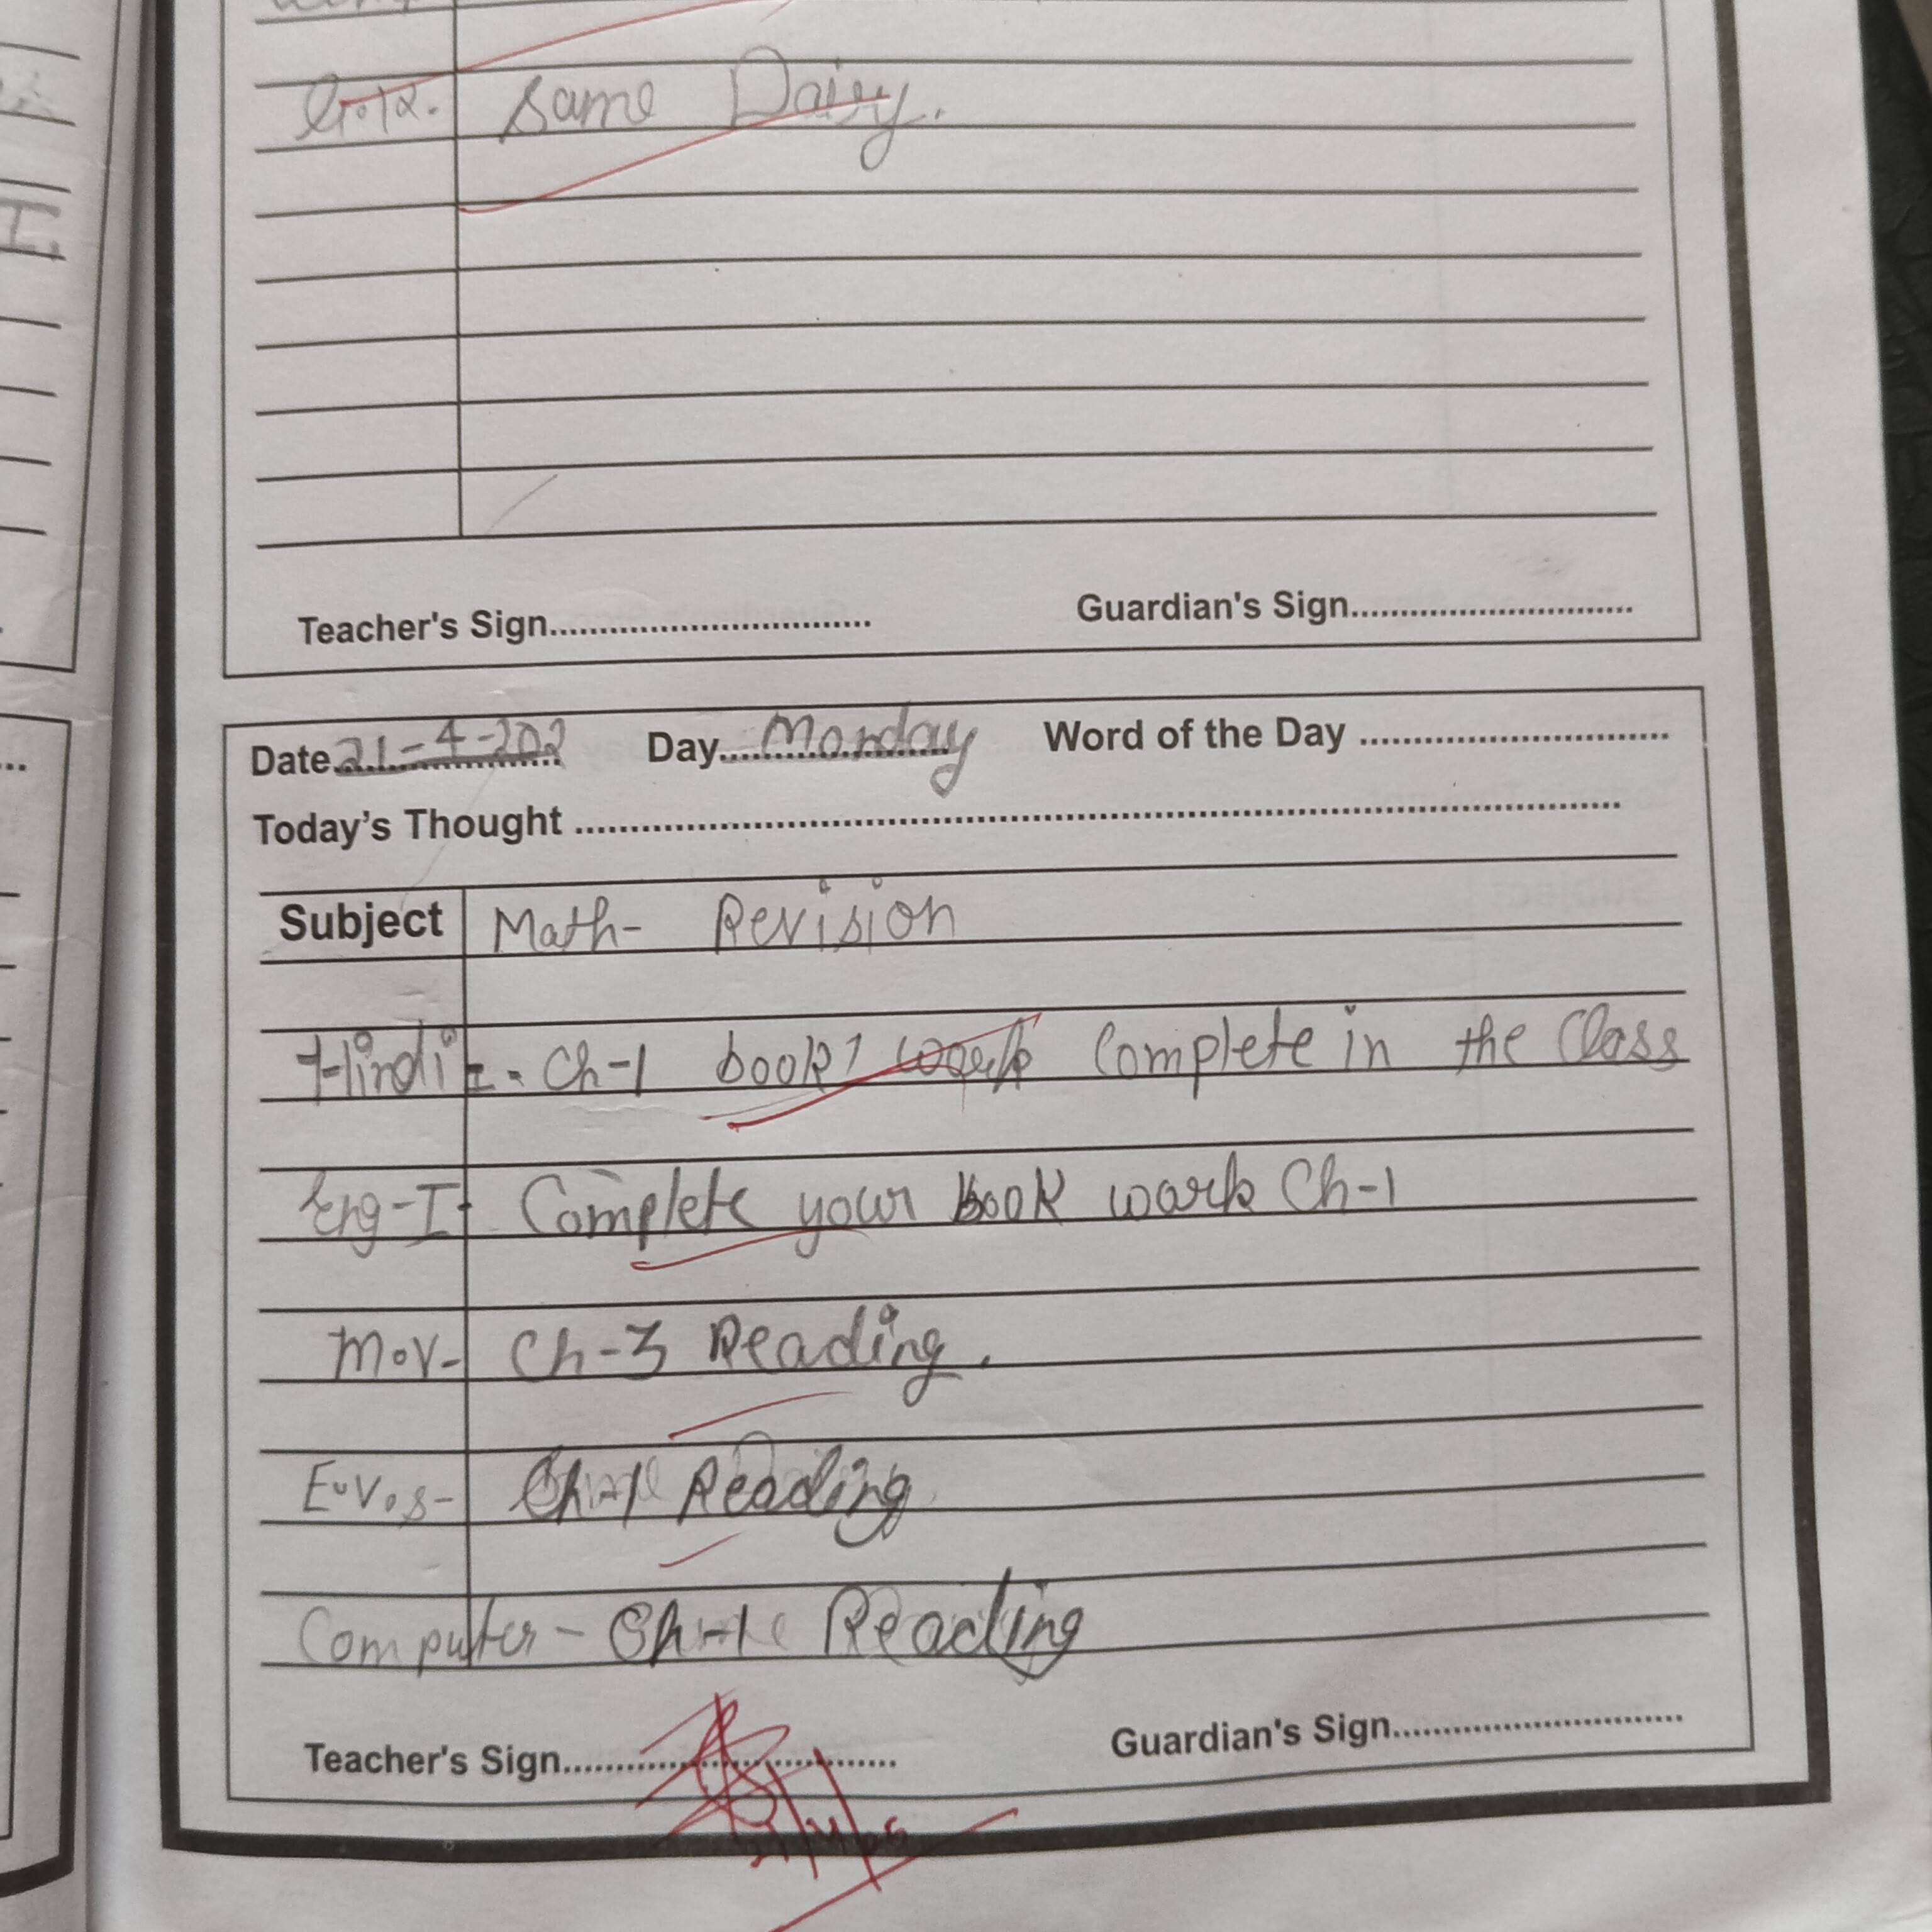 G.K. Same Dairy.
Teacher's Sign................................ Guardian's Sign.............................
Date 21-4-202 Day Monday Word of the Day ...............................
Today's Thought ................................................................
Subject Math- Revision
Hindi I. Ch-1 book work Complete in the Class
Eng-I- Complete your book work Ch-1
M.V- Ch-3 Reading.
E.V.S- Ch-1 Reading
Computer- Ch-1 Reading
Teacher's Sign................................ Guardian's Sign.............................